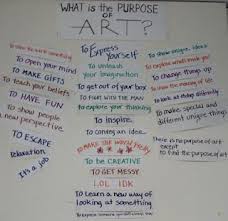 WHAT is the PURPOSE
OF
ART?
To open your mind
TO MAKE GIFTS
To teach your beliefs
TO HAVE FUN
To show people
a new perspective
TO ESCAPE
Relaxation.
It's a job
To Express
Yourself
To unleash
your imagination
To get out of your box
TO FIGHT WITH THE MAN
To explore your thinking
To inspire.
To convey an idea.
TO MAKE THE WORLD PRETTY
To be CREATIVE
TO GET MESSY
LOL IDK
To Learn a new way of
looking at something
To show unique ideas
To explain what's inside you
To change things up
To show the meaning of life
To look at things differently
To make special and
different unique things
There is no purpose of art
except
to find the purpose of art